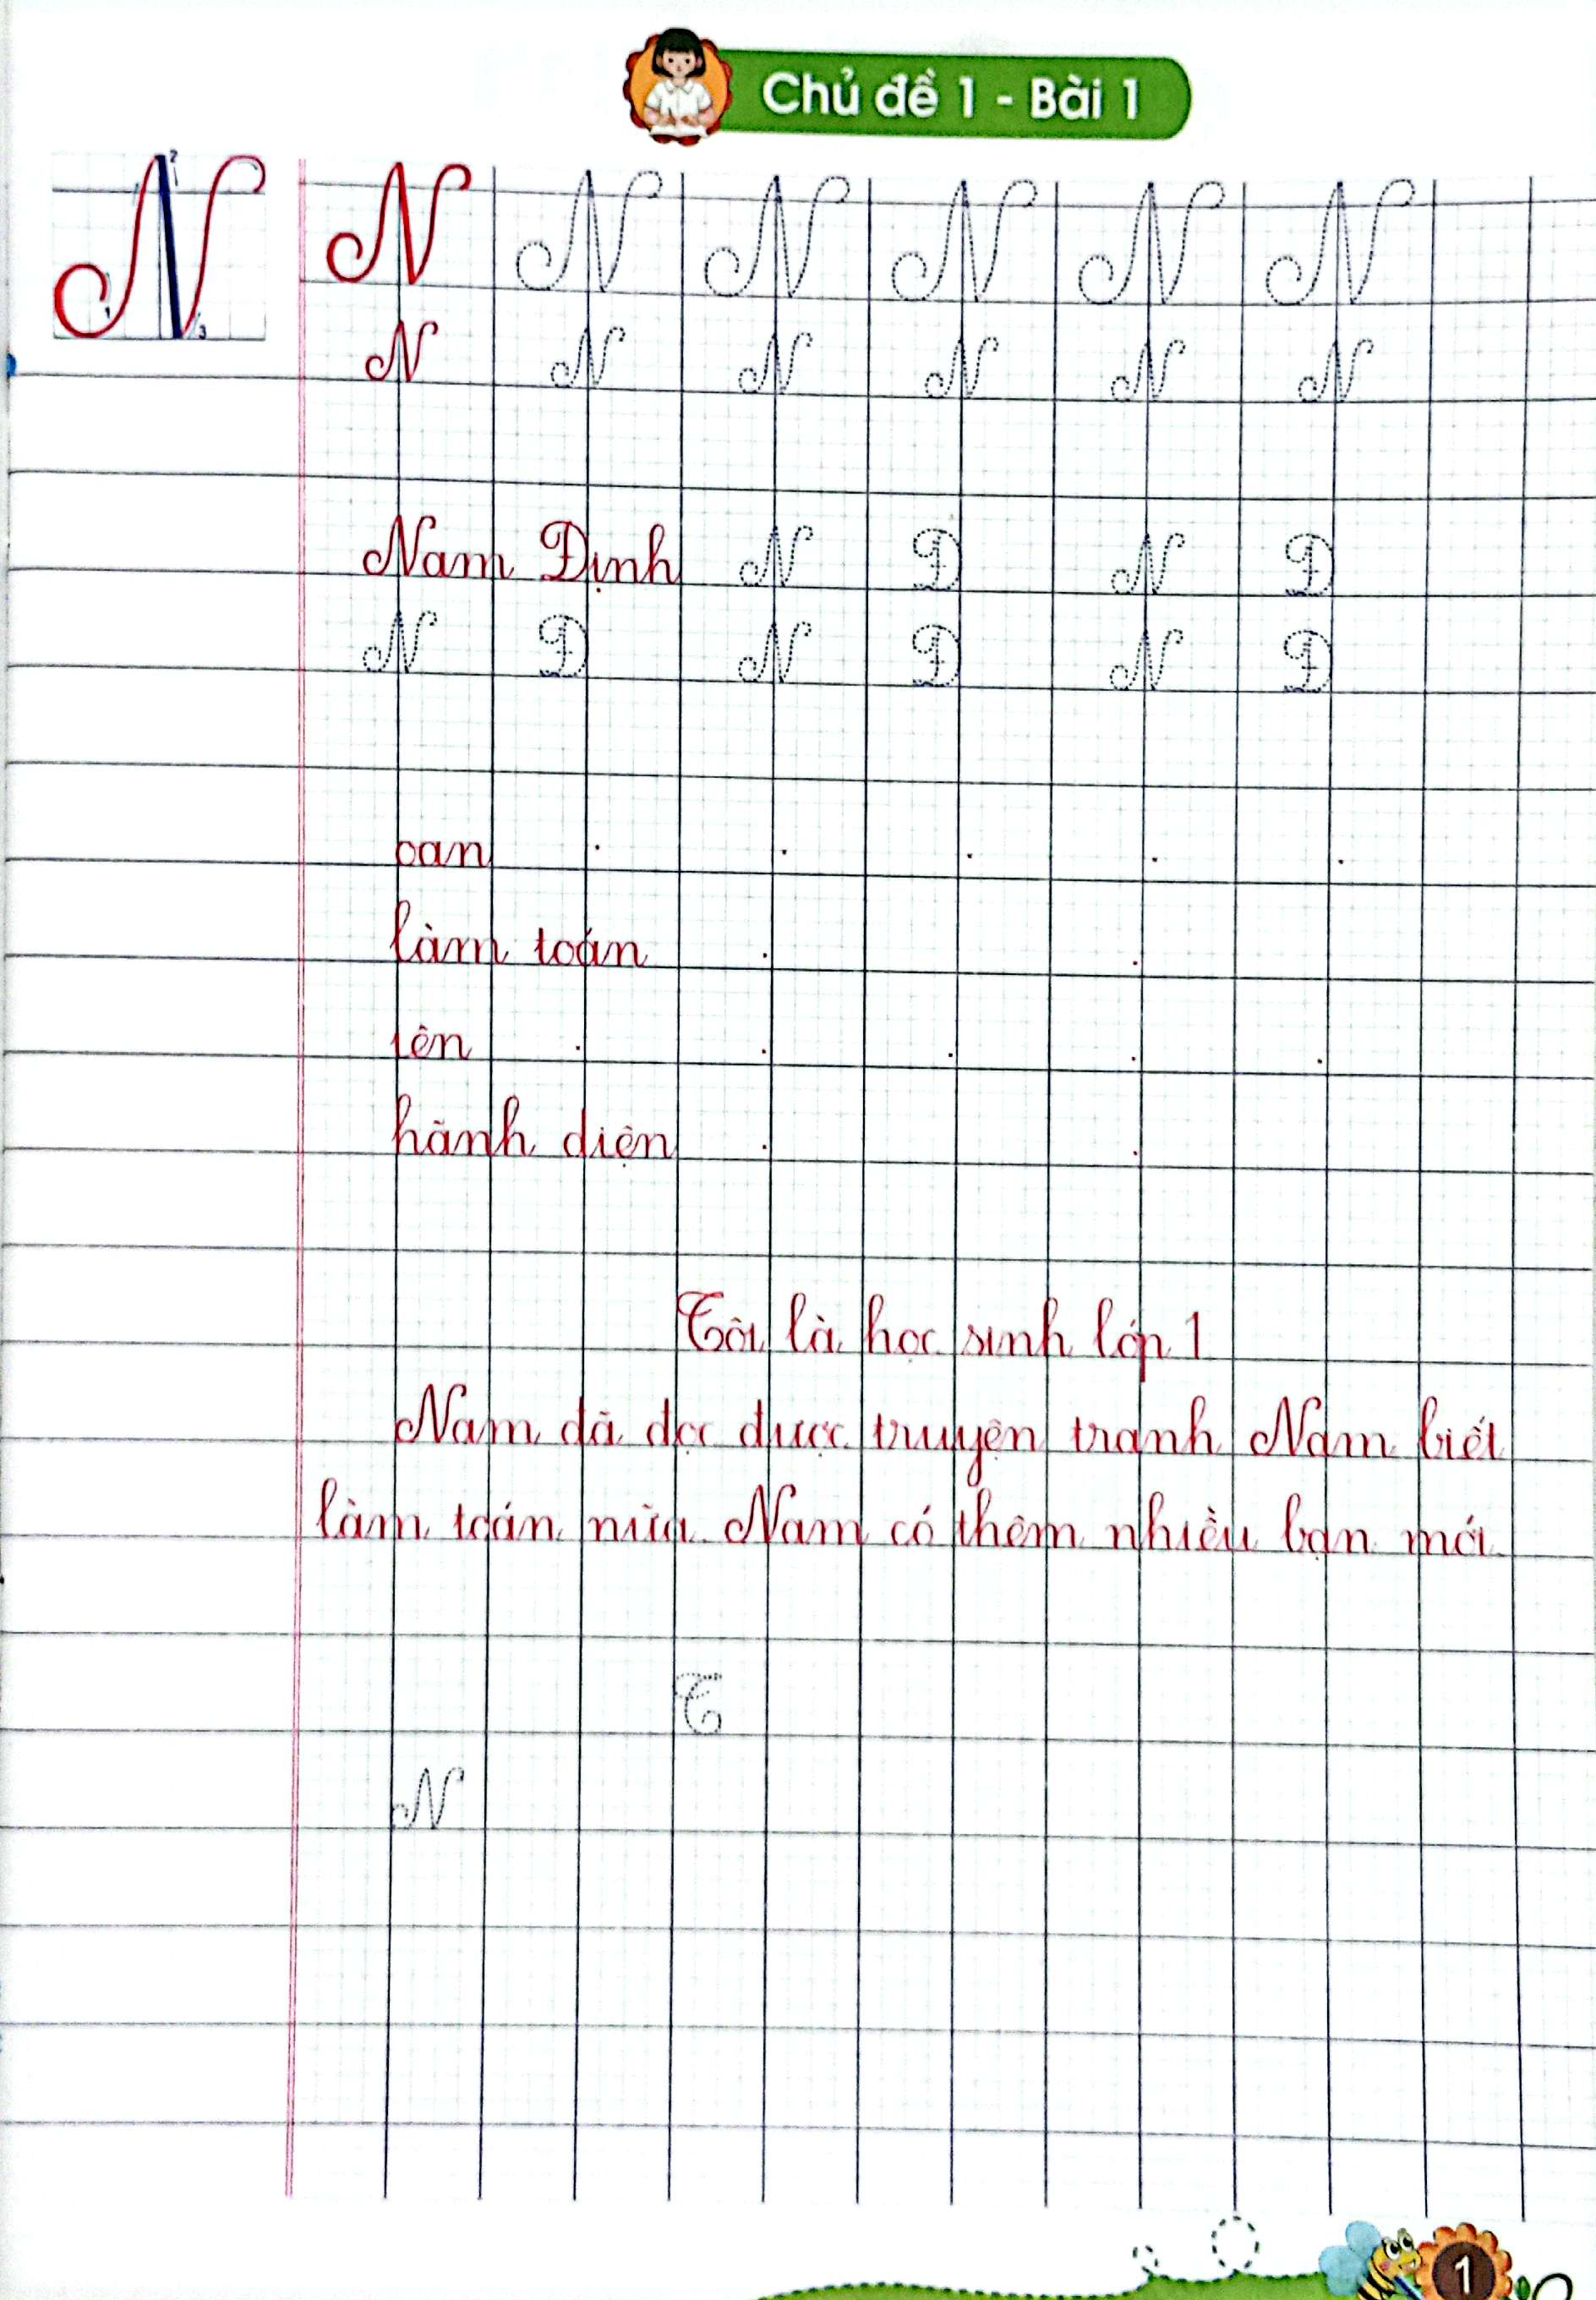 Chủ đề 1 - Bài 1
N N N N N N N
N N N N N N
Nam Định N Đ N Đ
N Đ N Đ N Đ
oan
làm toán
iên
hãnh diện
Tôi là học sinh lớp 1
Nam đã đọc được truyện tranh. Nam biết
làm toán nữa. Nam có thêm nhiều bạn mới.
T
N
1